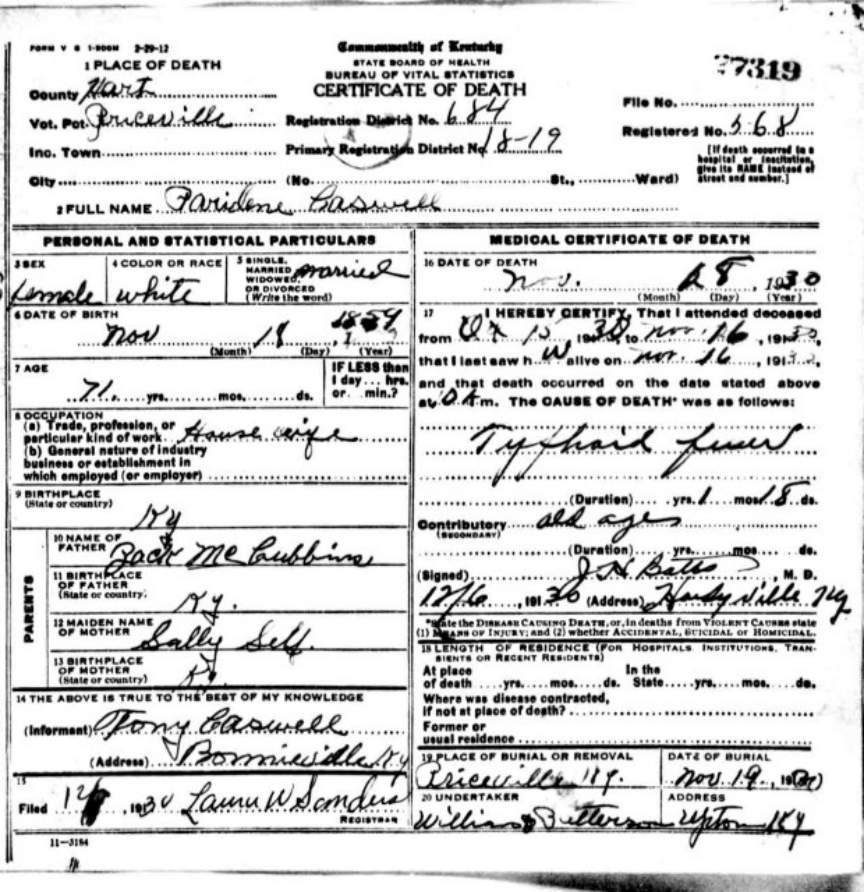 FORM V S 1-500M 2-29-12
Commonwealth of Kentucky
STATE BOARD OF HEALTH
BUREAU OF VITAL STATISTICS
CERTIFICATE OF DEATH
7319
1 PLACE OF DEATH
County Hart
Vot. Pct. Priceville
Inc. Town
City
Registration District No. 684
Primary Registration District No. 18-19
(No. St., Ward)
File No.
Registered No. 568
[If death occurred in a
hospital or institution,
give its NAME instead of
street and number.]
2 FULL NAME Paridene Caswell
PERSONAL AND STATISTICAL PARTICULARS
3 SEX
female
4 COLOR OR RACE
white
5 SINGLE,
MARRIED
WIDOWED,
OR DIVORCED
(Write the word)
married
6 DATE OF BIRTH
Nov 18 1859
(Month) (Day) (Year)
7 AGE
71 yrs. mos. ds.
IF LESS than
1 day... hrs.
or... min.?
8 OCCUPATION
(a) Trade, profession, or
particular kind of work House wife
(b) General nature of industry
business or establishment in
which employed (or employer)
9 BIRTHPLACE
(State or country)
Ky
PARENTS
10 NAME OF
FATHER Zack McCubbins
11 BIRTHPLACE
OF FATHER
(State or country)
Ky.
12 MAIDEN NAME
OF MOTHER
Sally Self
13 BIRTHPLACE
OF MOTHER
Ky
14 THE ABOVE IS TRUE TO THE BEST OF MY KNOWLEDGE
(Informant) Tony Caswell
(Address) Bonnieville Ky
15
Filed 12 , 1930 Laura W Sanders
REGISTRAR
11-3184
MEDICAL CERTIFICATE OF DEATH
16 DATE OF DEATH
Nov. 8, 1930
(Month) (Day) (Year)
17 I HEREBY CERTIFY, That I attended deceased
from 15, 1930, to Nov. 16, 1930,
that I last saw h alive on Nov. 16, 1930,
and that death occurred on the date stated above
at m. The CAUSE OF DEATH* was as follows:
Tyfhoid fever
(Duration) yrs. 1 mos. 18 ds.
Contributory old age
(SECONDARY)
(Duration) yrs. mos. ds.
(Signed) J H Batts, M. D.
12/6, 1930 (Address) Hardyville Ky
*State the DISEASE CAUSING DEATH, or, in deaths from VIOLENT CAUSES state
(1) MEANS OF INJURY; and (2) whether ACCIDENTAL, SUICIDAL OR HOMICIDAL.
18 LENGTH OF RESIDENCE (FOR HOSPITALS, INSTITUTIONS, TRAN-
SIENTS OR RECENT RESIDENTS)
At place In the
of death yrs. mos. ds. State yrs. mos. ds.
Where was disease contracted,
if not at place of death?
Former or
usual residence
19 PLACE OF BURIAL OR REMOVAL
Priceville Ky.
DATE OF BURIAL
Nov 19, 1930
20 UNDERTAKER
William Bitterson
ADDRESS
Upton Ky